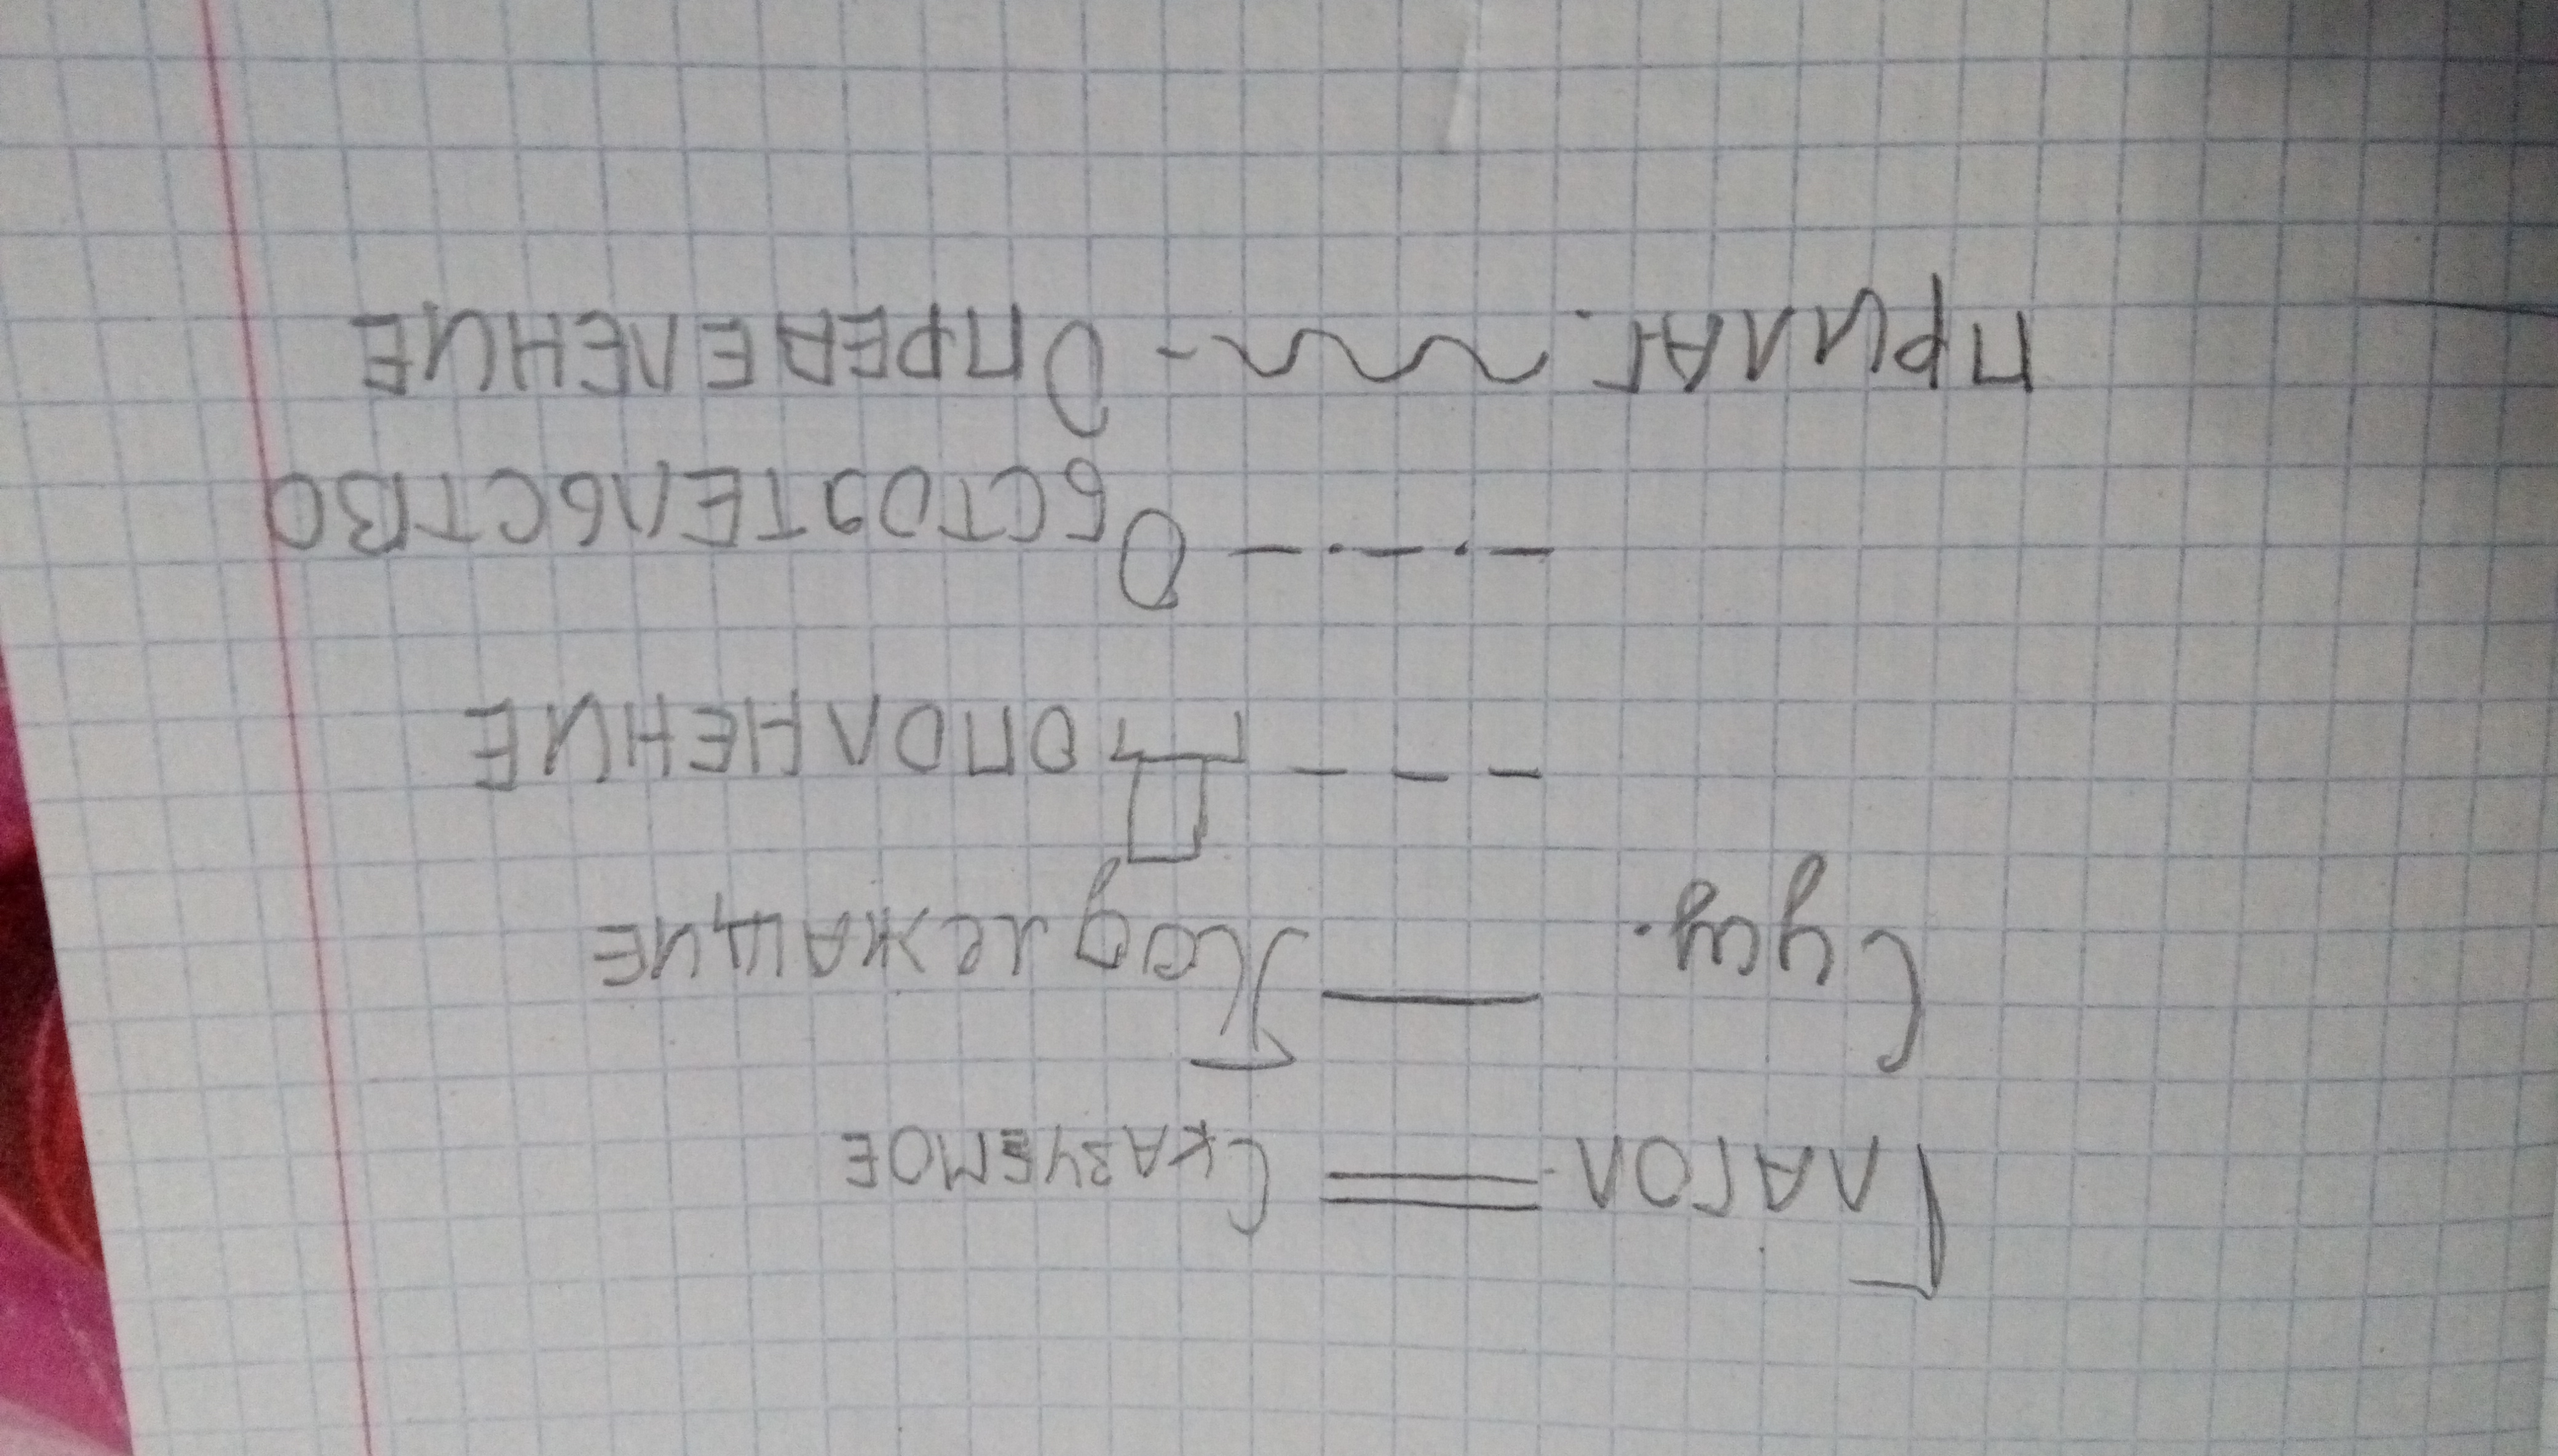 Глагол ═ Сказуемое
Сущ. — Подлежащие
- - - Дополнение
- · - · - Обстоятельство
Прилаг. ~~~ - Определение